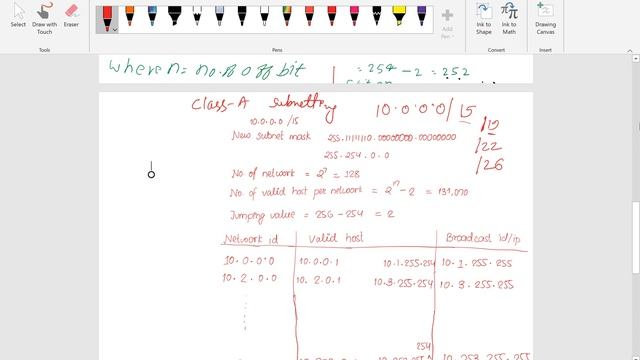 Select
Draw with Touch
Eraser
Add Pen
Ink to Shape
Ink to Math
Drawing Canvas
Tools
Pens
Convert
Insert
where n = no. of off bit
= 254 - 2 = 252
Class-A subnetting 10.0.0.0/15
10.0.0.0 /15
/19
New subnet mask 255.11111110.00000000.00000000
/22
255.254.0.0
/26
No of network = 2⁷ = 128
No of valid host per network = 2¹⁷-2 = 131,070
Jumping value = 256 - 254 = 2
Network id Valid host Broadcast id/ip
10.0.0.0 10.0.0.1 10.1.255.254 10.1.255.255
10.2.0.0 10.2.0.1 10.3.255.254 10.3.255.255
254